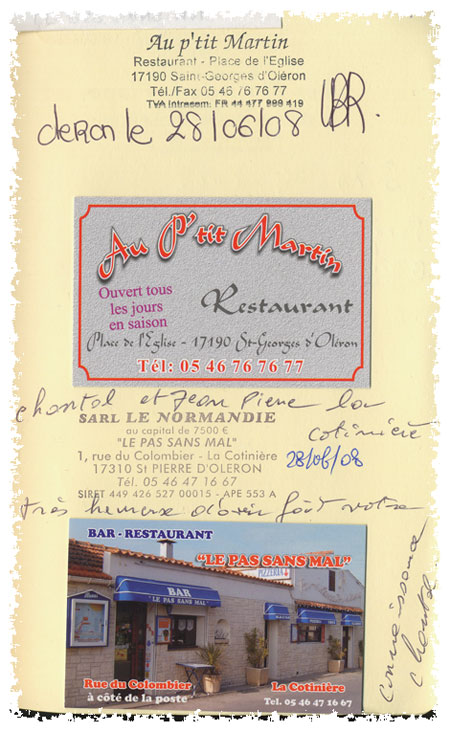 Au p'tit Martin
Restaurant - Place de l'Eglise
17190 Saint-Georges d'Oléron
Tél./Fax 05 46 76 76 77
TVA Intracom. FR 44 477 999 419
oleron le 28/06/08
Au P'tit Martin
Ouvert tous
les jours
en saison
Restaurant
Place de l'Eglise - 17190 St-Georges d'Oléron
Tél: 05 46 76 76 77
chantal et Jean Pierre la
cotinière
SARL LE NORMANDIE
au capital de 7500 €
"LE PAS SANS MAL"
1, rue du Colombier - La Cotinière
17310 St PIERRE D'OLERON
28/06/08
Tél. 05 46 47 16 67
SIRET 449 426 527 00015 - APE 553 A
très heureuse d'avoir fait votre
connaissance
chantal
BAR - RESTAURANT
"LE PAS SANS MAL"
PIZZERIA
BAR
"LE PAS SANS MAL"
Rue du Colombier
à côté de la poste
La Cotinière
Tel. 05 46 47 16 67